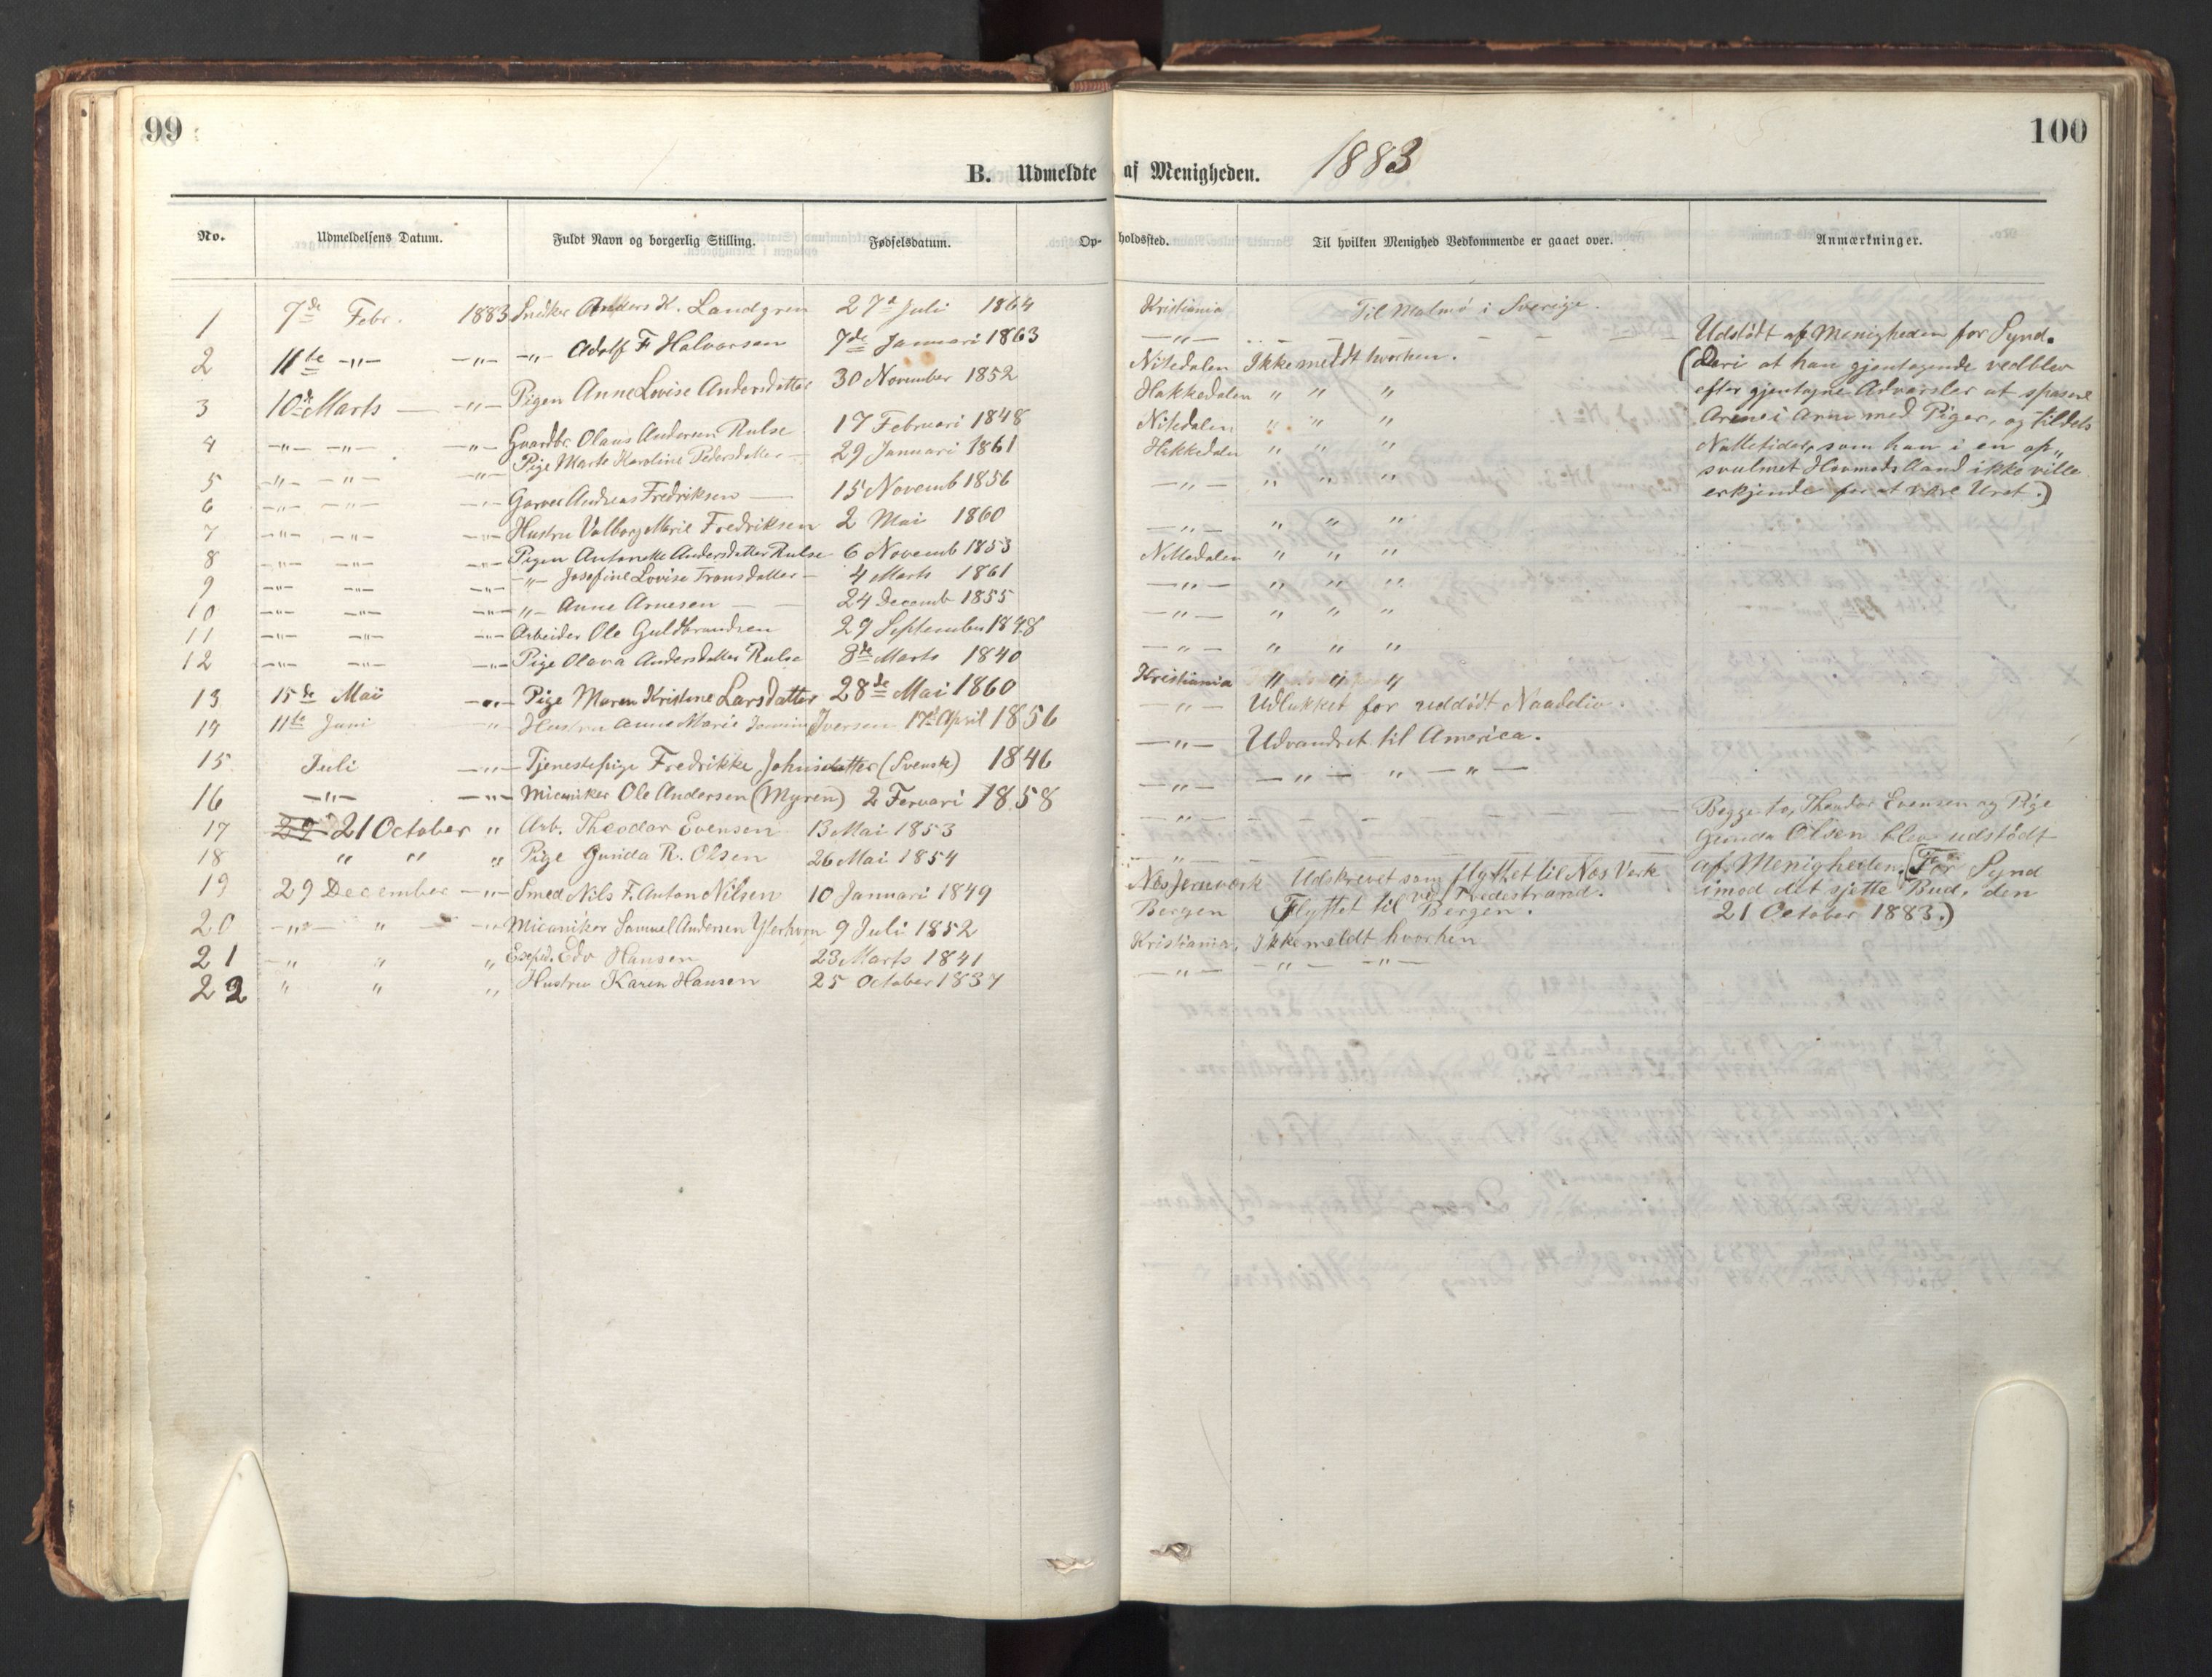 99
100
B. Udmeldte af Menigheden. 1883
No. Udmeldelsens Datum. Fuldt Navn og borgerlig Stilling. Fødselsdatum. Opholdssted. Til hvilken Menighed Vedkommende er gaaet over. Anmærkninger.
1 7de Febr. 1883 Snidker Anders K. Landgren 27de Juli 1864 Kristiania Til Malmø i Sverige.
2 11te -"- -"- -"- Adolf F Halvorsen 7de Januari 1863 -"- Udstødt af Menigheden for Synd.
3 10de Marts -"- Pigen Anne Lovise Andersdatter 30 November 1852 Nitedalen Ikke meldt hvorhen. (Deri at han gjentagende vedblev
4 -"- -"- -"- Gaardbr. Olaus Andersen Rulse 17 Februari 1848 Hakkedalen " " " efter gjentagne Advarsler at spasere
5 -"- -"- -"- Pige Marte Karoline Pedersdatter 29 Januari 1861 Nitedalen " " " Arm i Arm med Piger, og tildels
6 -"- -"- -"- Garver Andreas Fredriksen 15 Novemb 1856 Hakkedalen " " " Nattetider, som han i en op„
7 -"- -"- -"- Hustru Valborg Marie Fredriksen 2 Mai 1860 -"- " " " svulmet Hovmods Aand ikke ville
8 -"- -"- -"- Pigen Antonette Andersdatter Rulse 6 Novemb 1853 -"- " " " erkjende for at være Uret.)
9 -"- -"- -"- -"- Josefine Lovise Fransdatter 4 Marts 1861 Nittedalen " " "
10 -"- -"- -"- " Anne Arnesen 24 Decemb 1855 -"- " " "
11 -"- -"- -"- Arbeider Ole Guldbrandsen 29 September 1848 -"- " " "
12 -"- -"- -"- Pige Olava Andersdatter Rulse 8de Marts 1840 -"- " " "
13 15de Mai -"- Pige Maren Kristine Larsdatter 28de Mai 1860 Kristiania " " "
14 11te Juni -"- Hustru Anne Marie Iversen 17de April 1856 -"- Udlukket for uddødt Naadeliv.
15 Juli -"- Tjenestepige Fredrikke Johnsdatter (Svensk) 1846 -"- Udvandret til America.
16 -"- -"- Micaniker Ole Andersen (Myren) 2 Feruari 1858 -"- -"- " -"-
17 29 21 October " Arb. Theodor Evensen 13 Mai 1853 -"- Begge to, Theodor Evensen og Pige
18 " " " Pige Gunda R. Olsen 26 Mai 1854 " Gunda Olsen blev udstødt
19 29 December -"- Smed Nils F. Anton Nilsen 10 Januari 1849 Næs Jernværk Udskrevet som flyttet til Næs Verk af Menigheden. (For Synd
ved Tvedestrand. imod det sjette Bud, den
20 -"- " -"- Micaniker Samuel Andersen Ytterhorn 9 Juli 1852 Bergen Flyttet til Bergen. 21 October 1883.)
21 -"- " " Edv Hansen 23 Marts 1841 Kristiania, Ikke meldt hvorhen
22 " " " Hustru Karen Hansen 25 October 1837 -"- -"- -"-